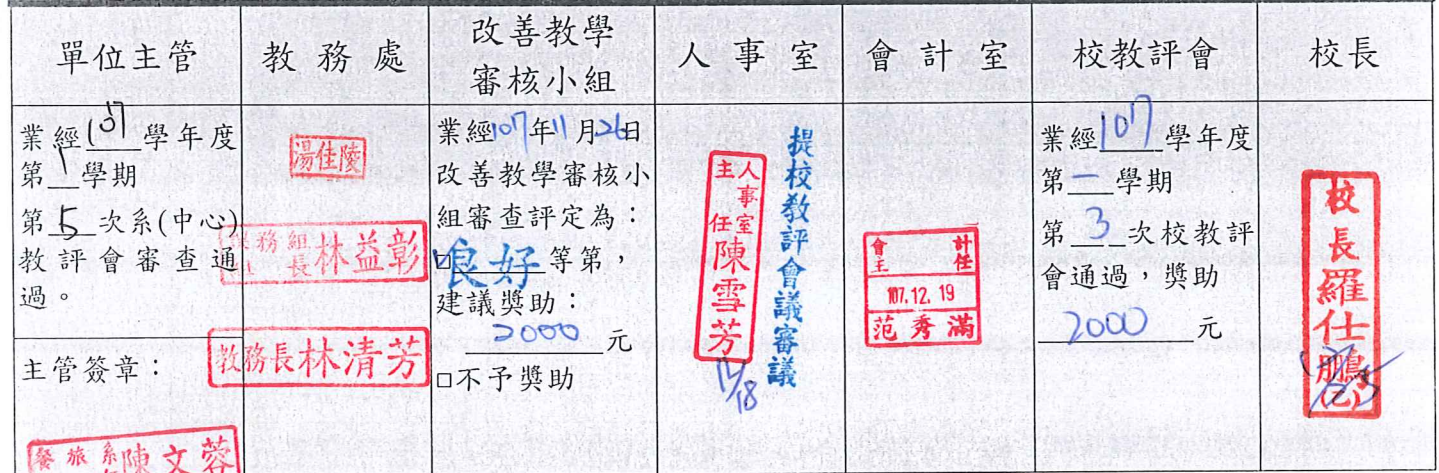 單位主管
教務處
改善教學
審核小組
人事室
會計室
校教評會
校長
業經107學年度
第1學期
第5次系(中心)
教評會審查通
過。
主管簽章：
餐旅系
陳文蓉
湯佳陵
課務組
長
林益彰
教務長林清芳
業經107年11月26日
改善教學審核小
組審查評定為：
□良好等第，
建議獎助：
2000元
□不予獎助
提校教評會議審議
人事室
主任
陳雪芳
12/18
會計
主任
107.12.19
范秀滿
業經107學年度
第一學期
第3次校教評
會通過，獎助
2000元
校長羅仕鵬
(乙)